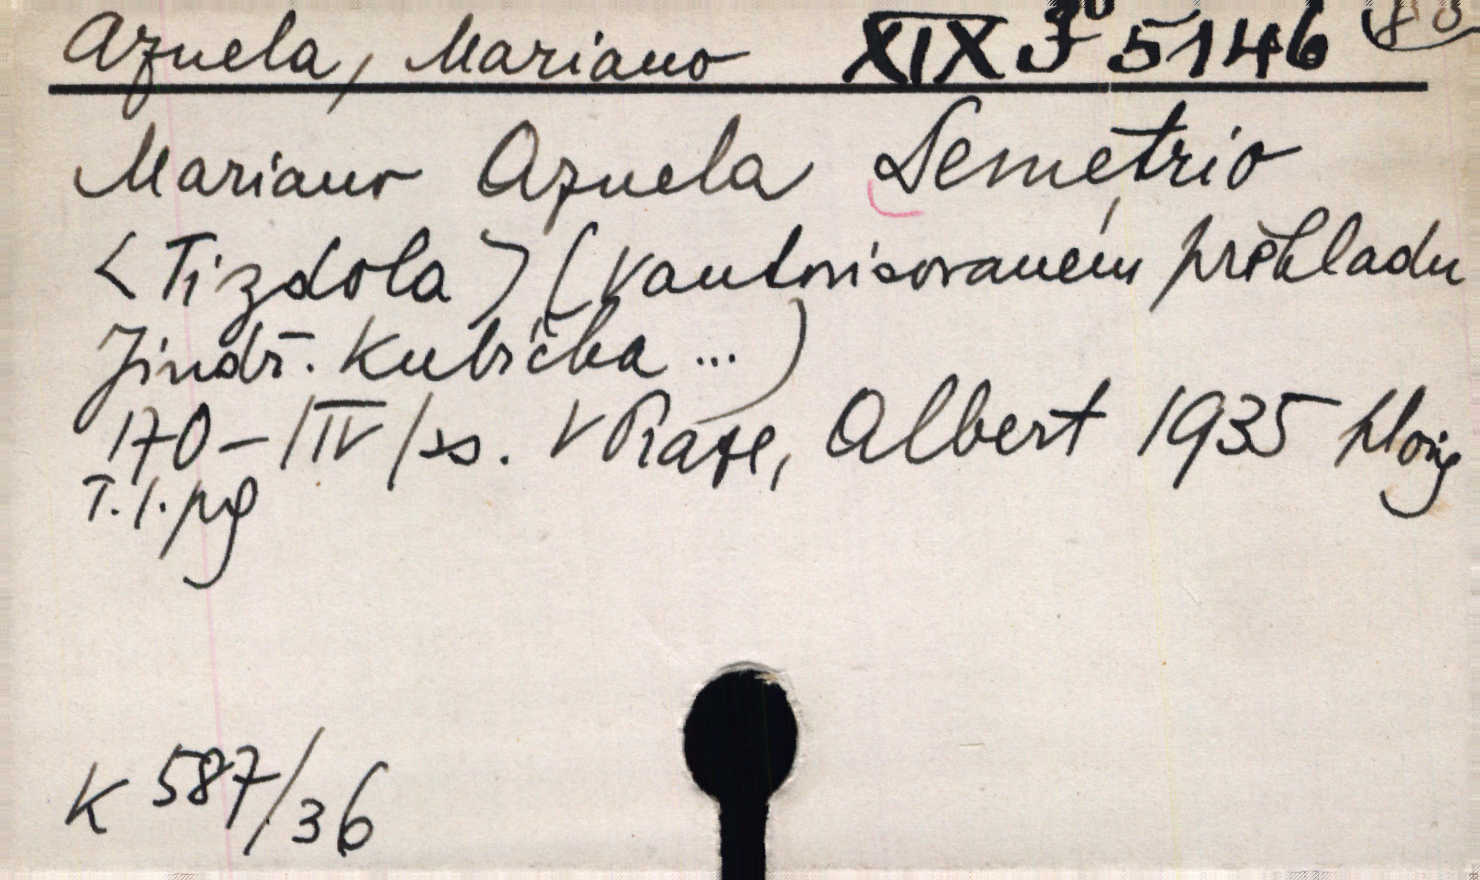 Azuela, Mariano XIX J 5146
Mariano Azuela Demetrio
<Tizdola> (V autorisovaném překladu
Jindř. Kubíčka ...)
170-/IV/ss. V Praze, Albert 1935
T.
K 587/36